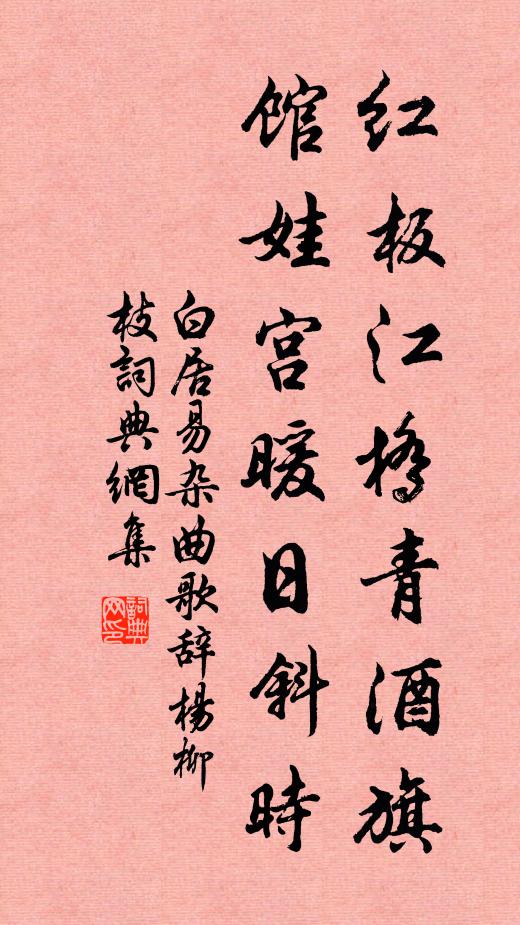 红板江橋青酒旗
馆娃宫暖日斜時
白居易杂曲歌辞楊柳
枝詞典網集
詞典网印